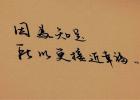 因为知足
所以更接近幸福。